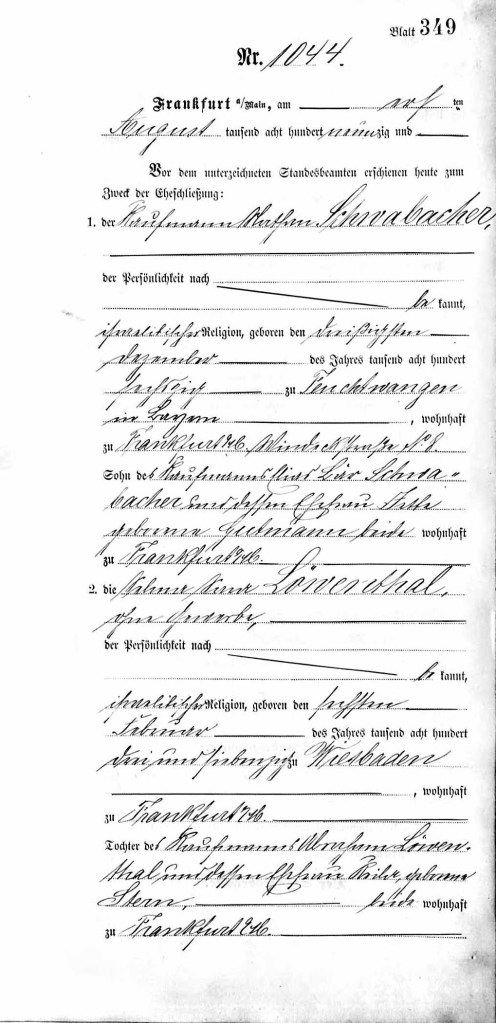 Blatt 349
Nr. 1044.
Frankfurt a/Main, am ten
August tausend acht hundert neunzig und
Vor dem unterzeichneten Standesbeamten erschienen heute zum
Zweck der Eheschließung:
1. der Kaufmann Nathan Schwabacher,
der Persönlichkeit nach
be kannt,
israelitischer Religion, geboren den dreißigsten
Dezember des Jahres tausend acht hundert
sechszig zu Feuchtwangen
in Bayern, wohnhaft
zu Frankfurt a/M. Windeckstraße No 8.
Sohn des Kaufmanns Bär Schwa-
bacher und dessen Ehefrau Jette
geborene Gutmann beide wohnhaft
zu Frankfurt a/M.
2. die Selma Löwenthal,
ohne Gewerbe,
der Persönlichkeit nach
be kannt,
israelitischer Religion, geboren den sechsten
Februar des Jahres tausend acht hundert
drei und siebenzig zu Wiesbaden
, wohnhaft
zu Frankfurt a/M.
Tochter des Kaufmanns Abraham Löwen-
thal, und dessen Ehefrau geborene
Stern, beide wohnhaft
zu Frankfurt a/M.